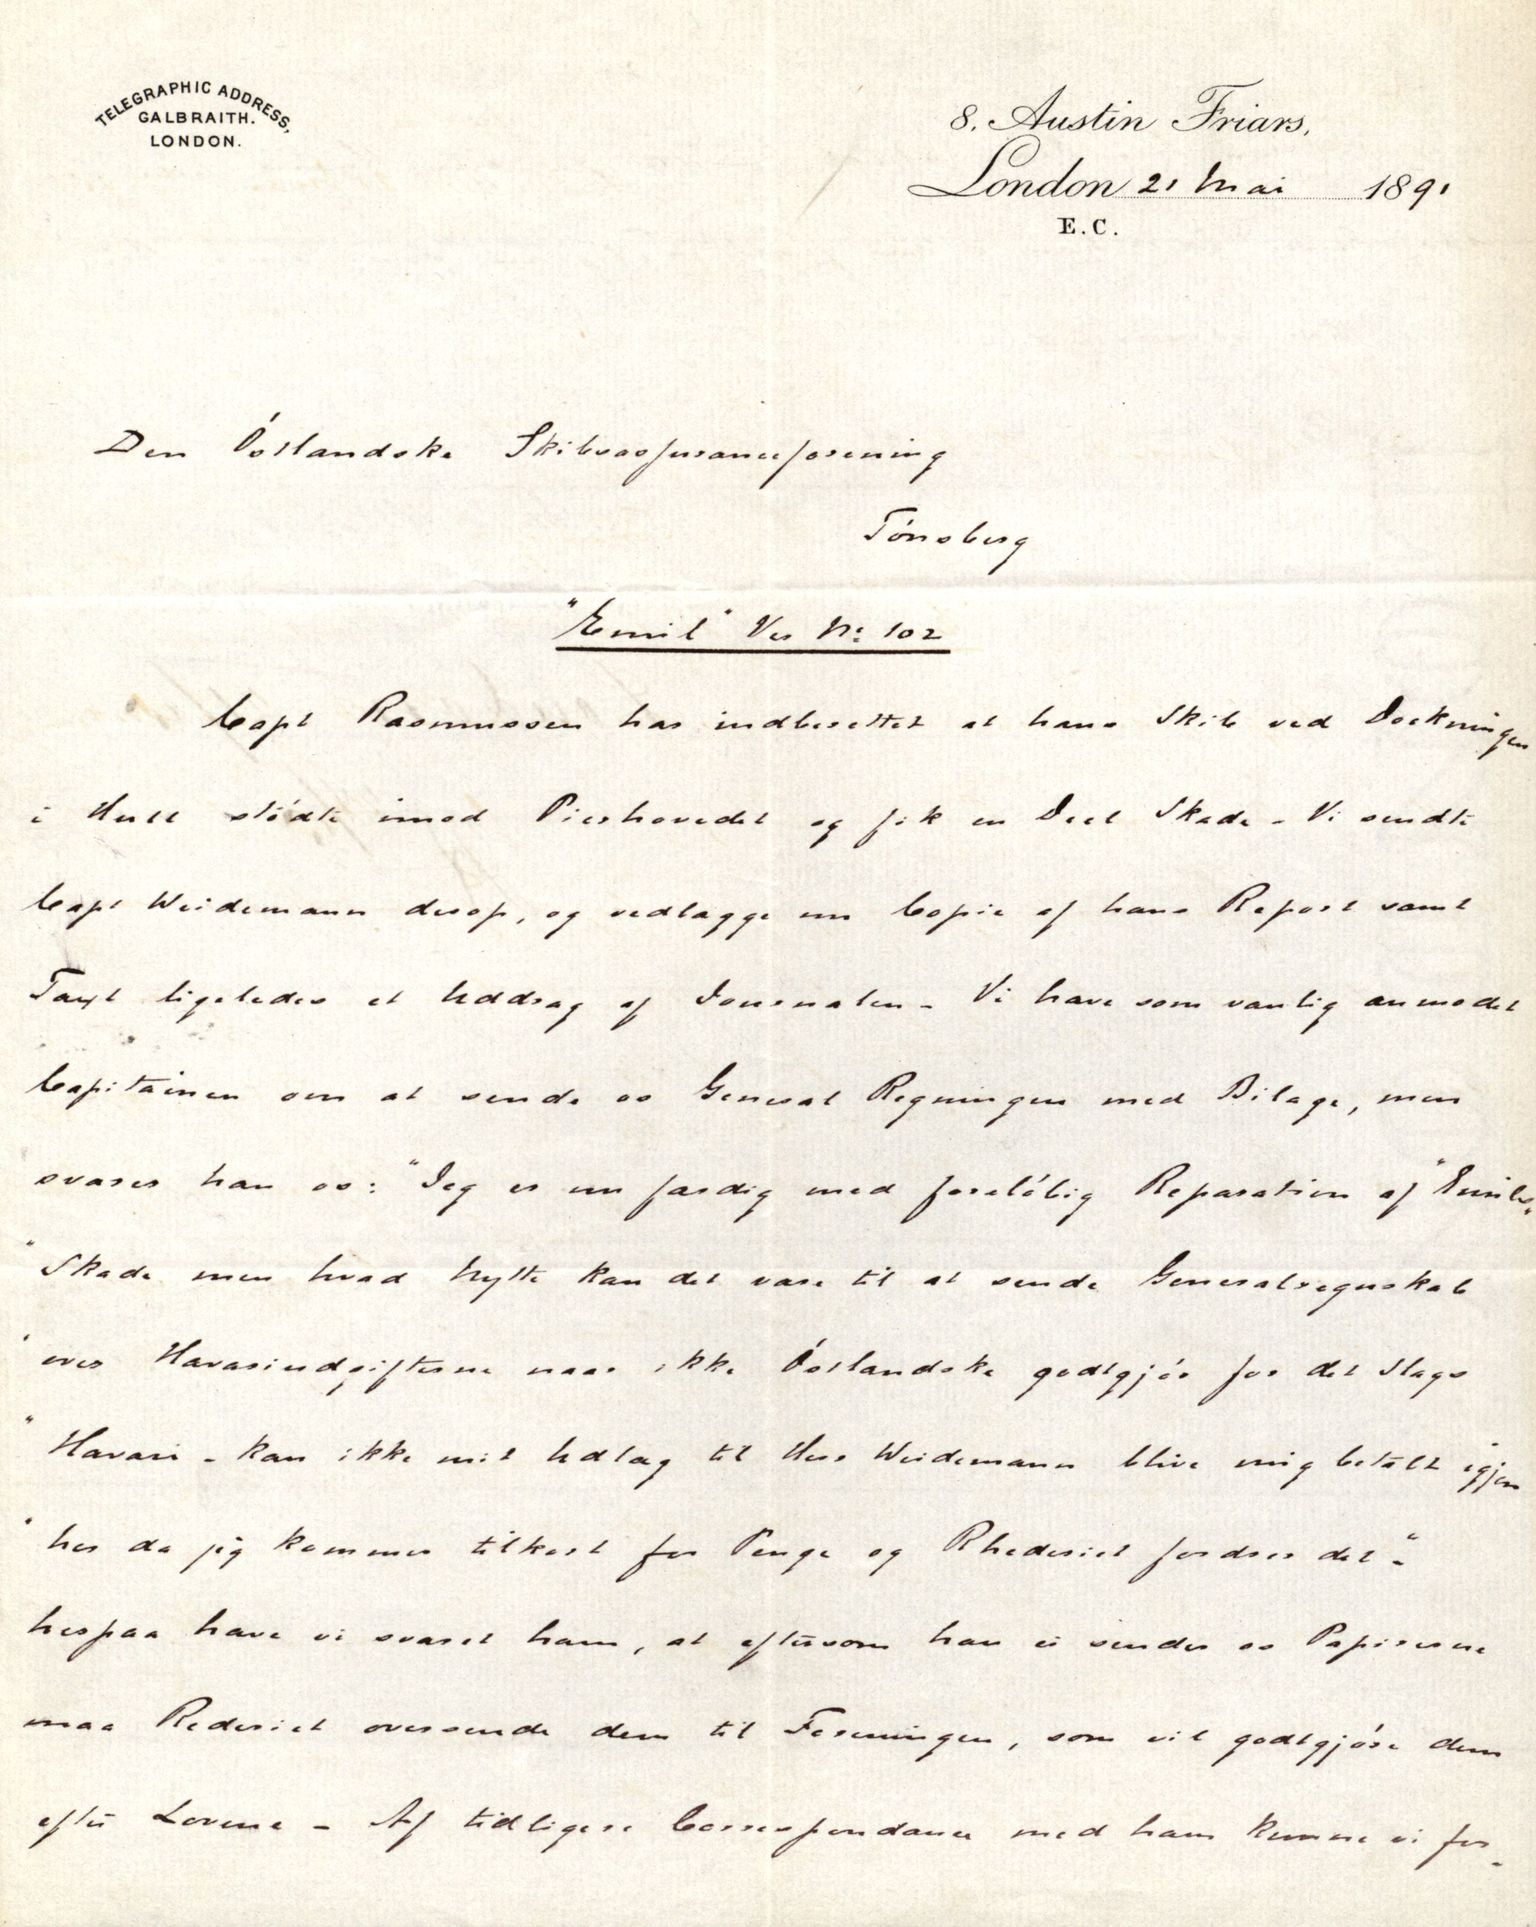 TELEGRAPHIC ADDRESS,
GALBRAITH.
LONDON.
8. Austin Friars,
London 21 Mai 1891
E.C.
Den Östlandske Skibsassuranceforening
Tönsberg
"Emil" Ver No: 102
Capt Rasmussen har indberettet at hans Skib ved Dockningen
i Hull stödte imod Pierhovedet og fik en Deel Skade - Vi sendte
Capt Weidemann derop, og vedlægge nu Copie af hans Report samt
Taxt ligeledes et Uddrag af Journalen - Vi have som vanlig anmodet
Capitainen om at sende os General Regningen med Bilage, men
svarer han os: "Jeg er nu færdig med foreløbig Reparation af "Emils"
"Skade men hvad Nytte kan det være til at sende Generalregnskab
"over Havariudgifterne naar ikke Östlandske godtgjör for det Slags
"Havari - kan ikke mit Udlæg til Herr Weidemann blive mig betalt igjen
"her da jeg kommer tilkort for Penge og Rhederiet fordrer det" -
herpaa have vi svaret ham, at eftersom han ei sender os Papirerne
maa Rederiet oversende dem til Foreningen, som vil godtgjöre dem
efter Lovene - Af tidligere Correspondance med ham kunne vi for-